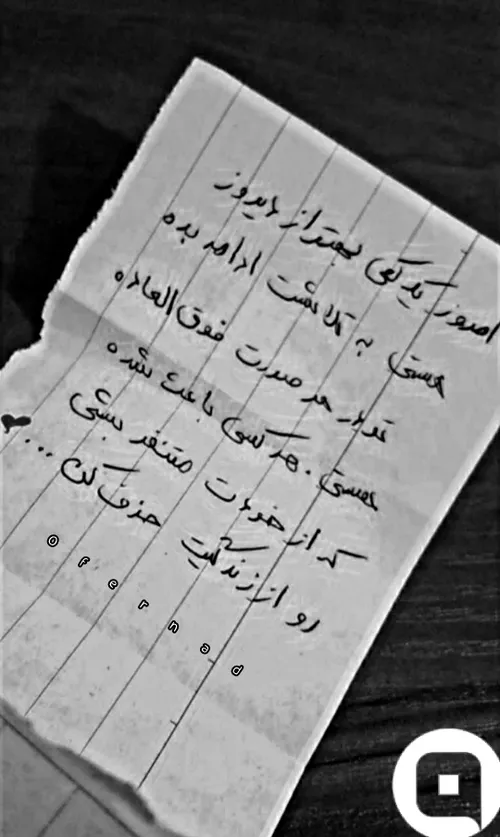 امروز یکم بهتر از دیروز
هستی به تلاشت ادامه بده
تو در هر صورت فوق العاده
هستی. هر کسی باعث شده
که از خودت متنفر بشی
رو از زندگیت حذف کن...
ofernad